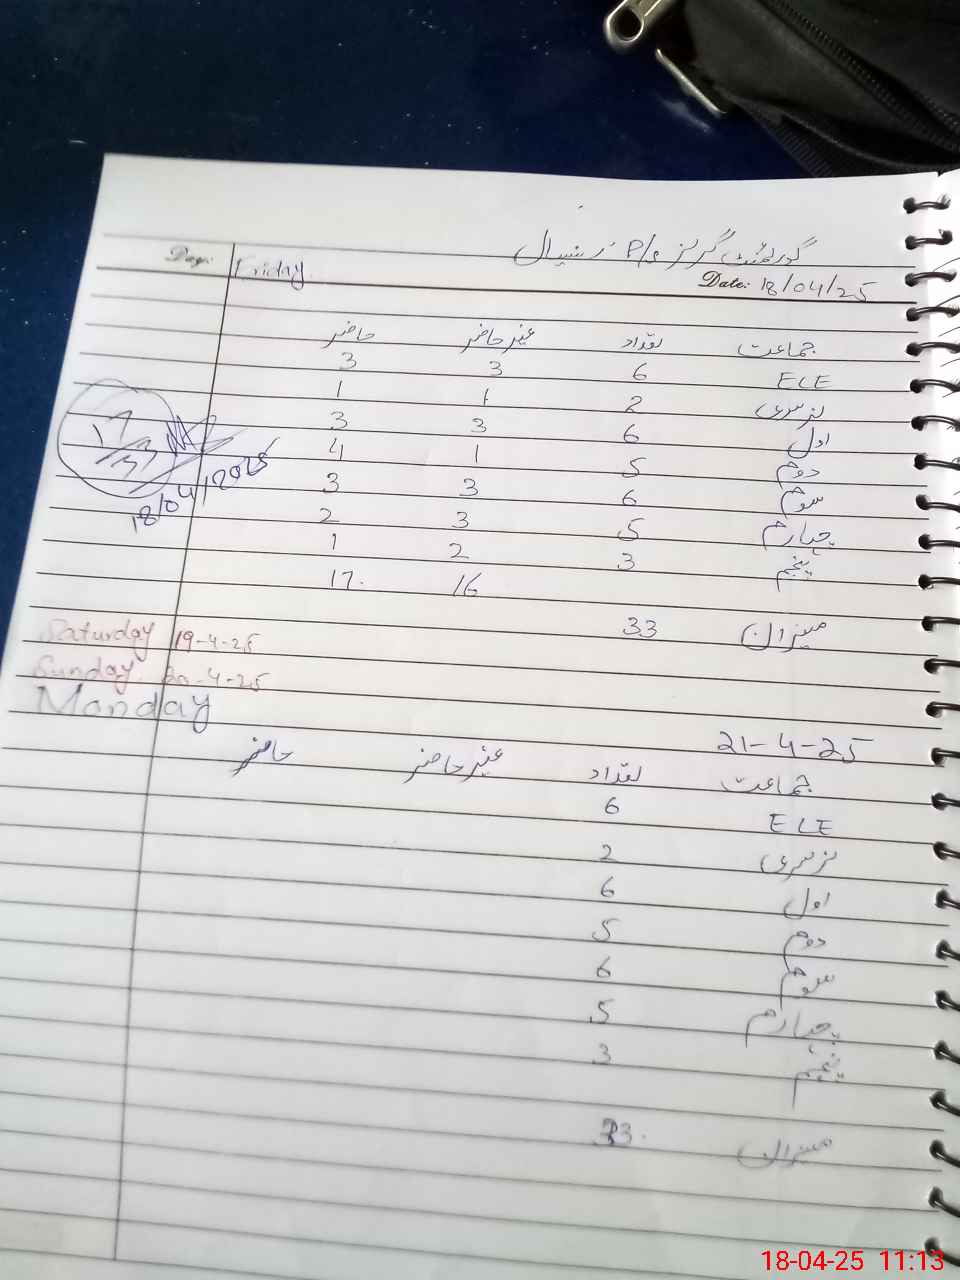 گورنمنٹ گرلز P/s
Day: Friday
Date: 18/04/25
جماعت تعداد غیر حاضر حاضر
ECE 6 3 3
نرسری 2 1 1
اول 6 3 3
دوم 5 1 4
سوم 6 3 3
چہارم 5 3 2
پنجم 3 2 1
16 17
میزان 33
17/33
18/04/2025
Saturday 19-4-25
Sunday 20-4-25
Monday
21-4-25
جماعت تعداد غیر حاضر حاضر
ECE 6
نرسری 2
اول 6
دوم 5
سوم 6
چہارم 5
پنجم 3
میزان 33
18-04-25 11:13